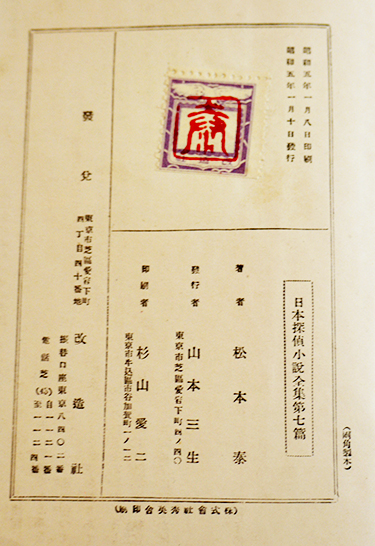 昭和五年一月八日印刷
昭和五年一月十日發行
日本探偵小說全集第七篇
著者 松本泰
發行者 山本三生
東京市芝區愛宕下町四ノ四〇
印刷者 杉山愛二
東京市牛込區市谷加賀町一ノ一二
發兌
東京市芝區愛宕下町
四丁目四十番地
改造社
振替口座東京八四〇二番
電話芝(43)自一一二一番
至一一二四番
(兩角製本)
(株式會社秀英舍印刷)